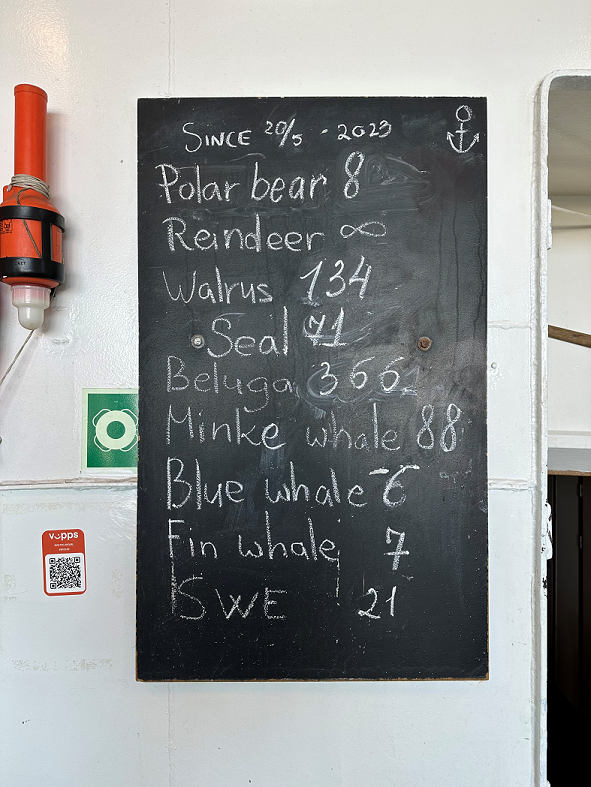 SINCE 20/5 - 2023
Polar bear 8
Reindeer ∞
Walrus 134
Seal 71
Beluga 366
Minke whale 88
Blue whale 6
Fin whale 7
SWE 21
vipps